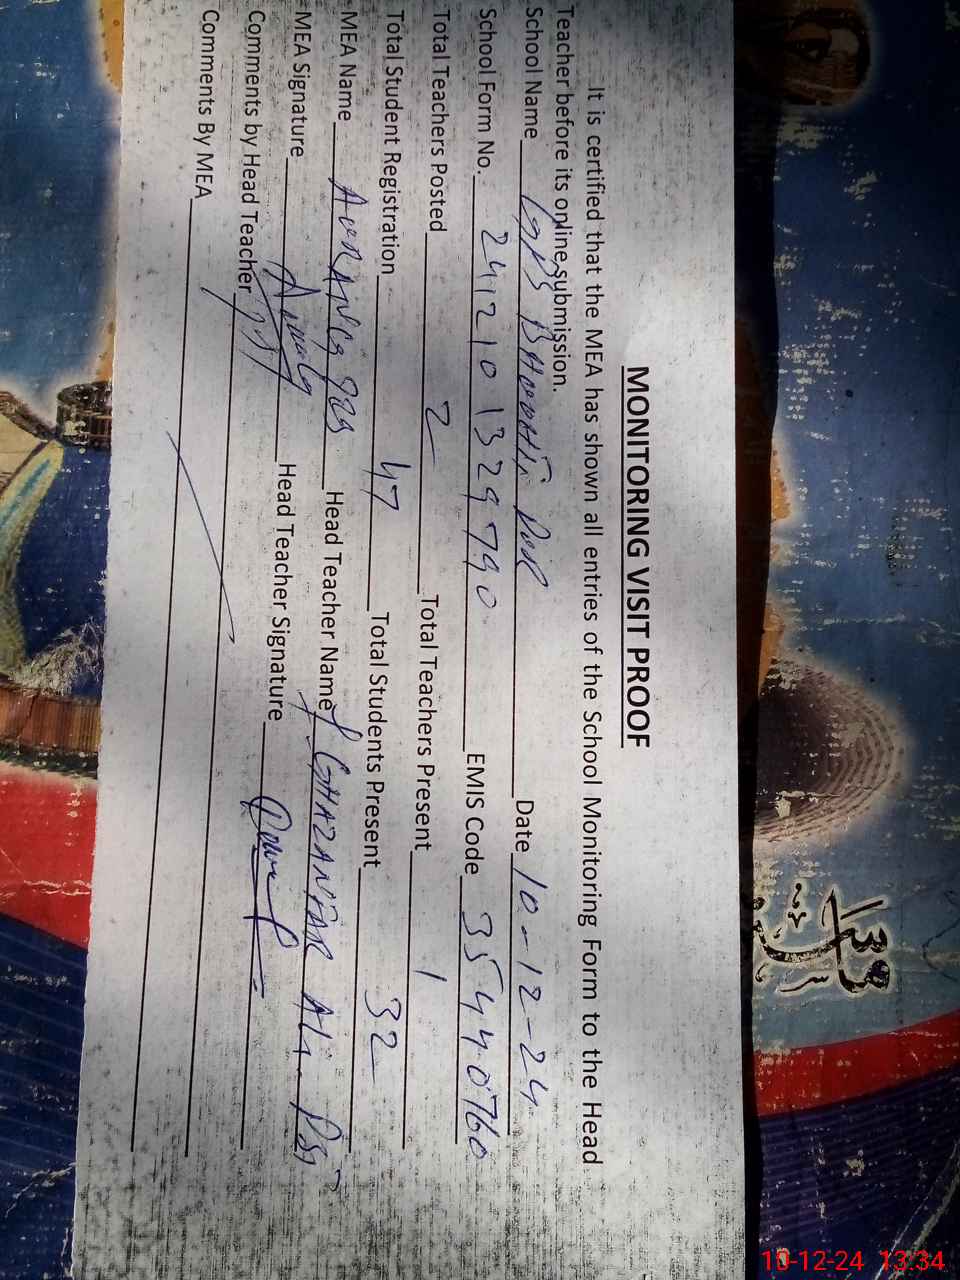 MONITORING VISIT PROOF
It is certified that the MEA has shown all entries of the School Monitoring Form to the Head
Teacher before its online submission.
School Name GPS Date 10-12-24
School Form No. 241210132979 0 EMIS Code 35440760
Total Teachers Posted 2 Total Teachers Present 1
Total Student Registration 47 Total Students Present 32
MEA Name Head Teacher Name GHAZANFAR ALi
MEA Signature Head Teacher Signature
Comments by Head Teacher
Comments By MEA
10-12-24 13:34